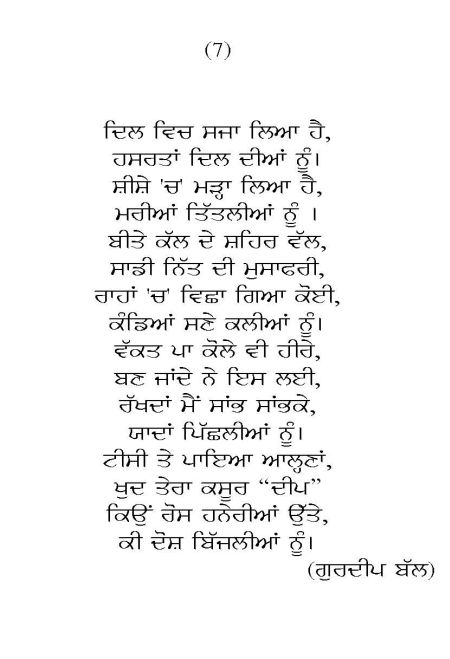 (7)
ਦਿਲ ਵਿਚ ਸਜਾ ਲਿਆ ਹੈ,
ਹਸਰਤਾਂ ਦਿਲ ਦੀਆਂ ਨੂੰ।
ਸ਼ੀਸ਼ੇ 'ਚ' ਮੜ੍ਹਾ ਲਿਆ ਹੈ,
ਮਰੀਆਂ ਤਿੱਤਲੀਆਂ ਨੂੰ ।
ਬੀਤੇ ਕੱਲ ਦੇ ਸ਼ਹਿਰ ਵੱਲ,
ਸਾਡੀ ਨਿੱਤ ਦੀ ਮੁਸਾਫਰੀ,
ਰਾਹਾਂ 'ਚ' ਵਿਛਾ ਗਿਆ ਕੋਈ,
ਕੰਡਿਆਂ ਸਣੇ ਕਲੀਆਂ ਨੂੰ।
ਵੱਕਤ ਪਾ ਕੋਲੇ ਵੀ ਹੀਰੇ,
ਬਣ ਜਾਂਦੇ ਨੇ ਇਸ ਲਈ,
ਰੱਖਦਾਂ ਮੈਂ ਸਾਂਭ ਸਾਂਭਕੇ,
ਯਾਦਾਂ ਪਿੱਛਲੀਆਂ ਨੂੰ।
ਟੀਸੀ ਤੇ ਪਾਇਆ ਆਲ੍ਹਣਾਂ,
ਖੁਦ ਤੇਰਾ ਕਸੂਰ “ਦੀਪ”
ਕਿਉਂ ਰੋਸ ਹਨੇਰੀਆਂ ਉੱਤੇ,
ਕੀ ਦੋਸ਼ ਬਿੱਜਲੀਆਂ ਨੂੰ।
(ਗੁਰਦੀਪ ਬੱਲ)